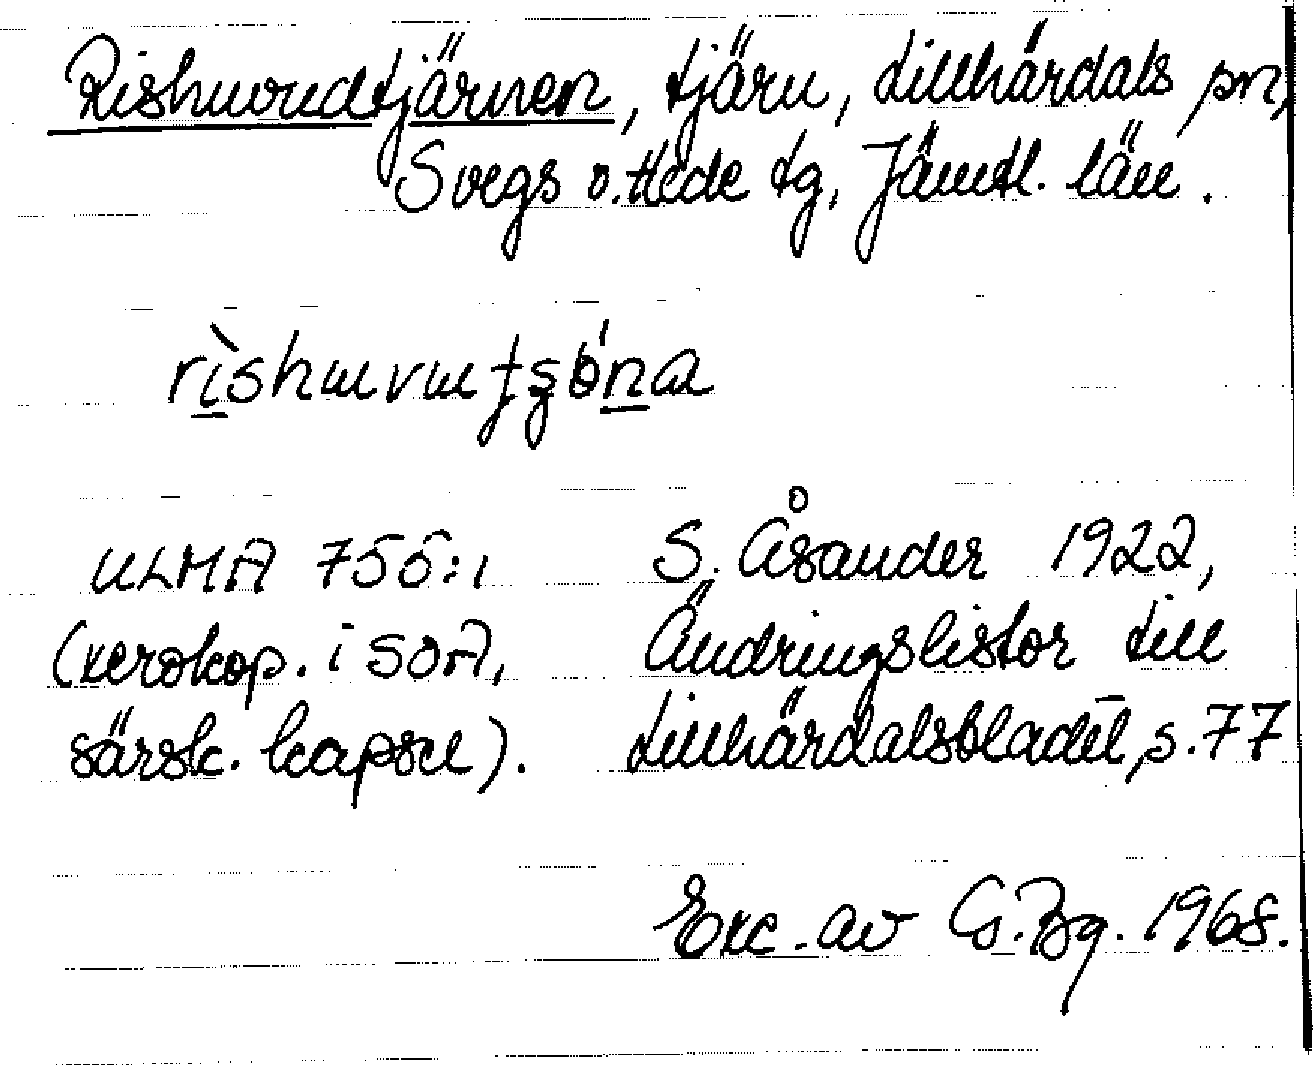 Rishuvudtjärnen, tjärn, Lillhärdals sn,
Svegs o. Hede tg, Jämtl. län.
ULMA 755:1 S. Åsander 1922,
(xerokop. i SOA, Ändringslistor till
särsk. kapsel). Lillhärdalsbladet, s. 77
Exc. av G. Bg. 1968.